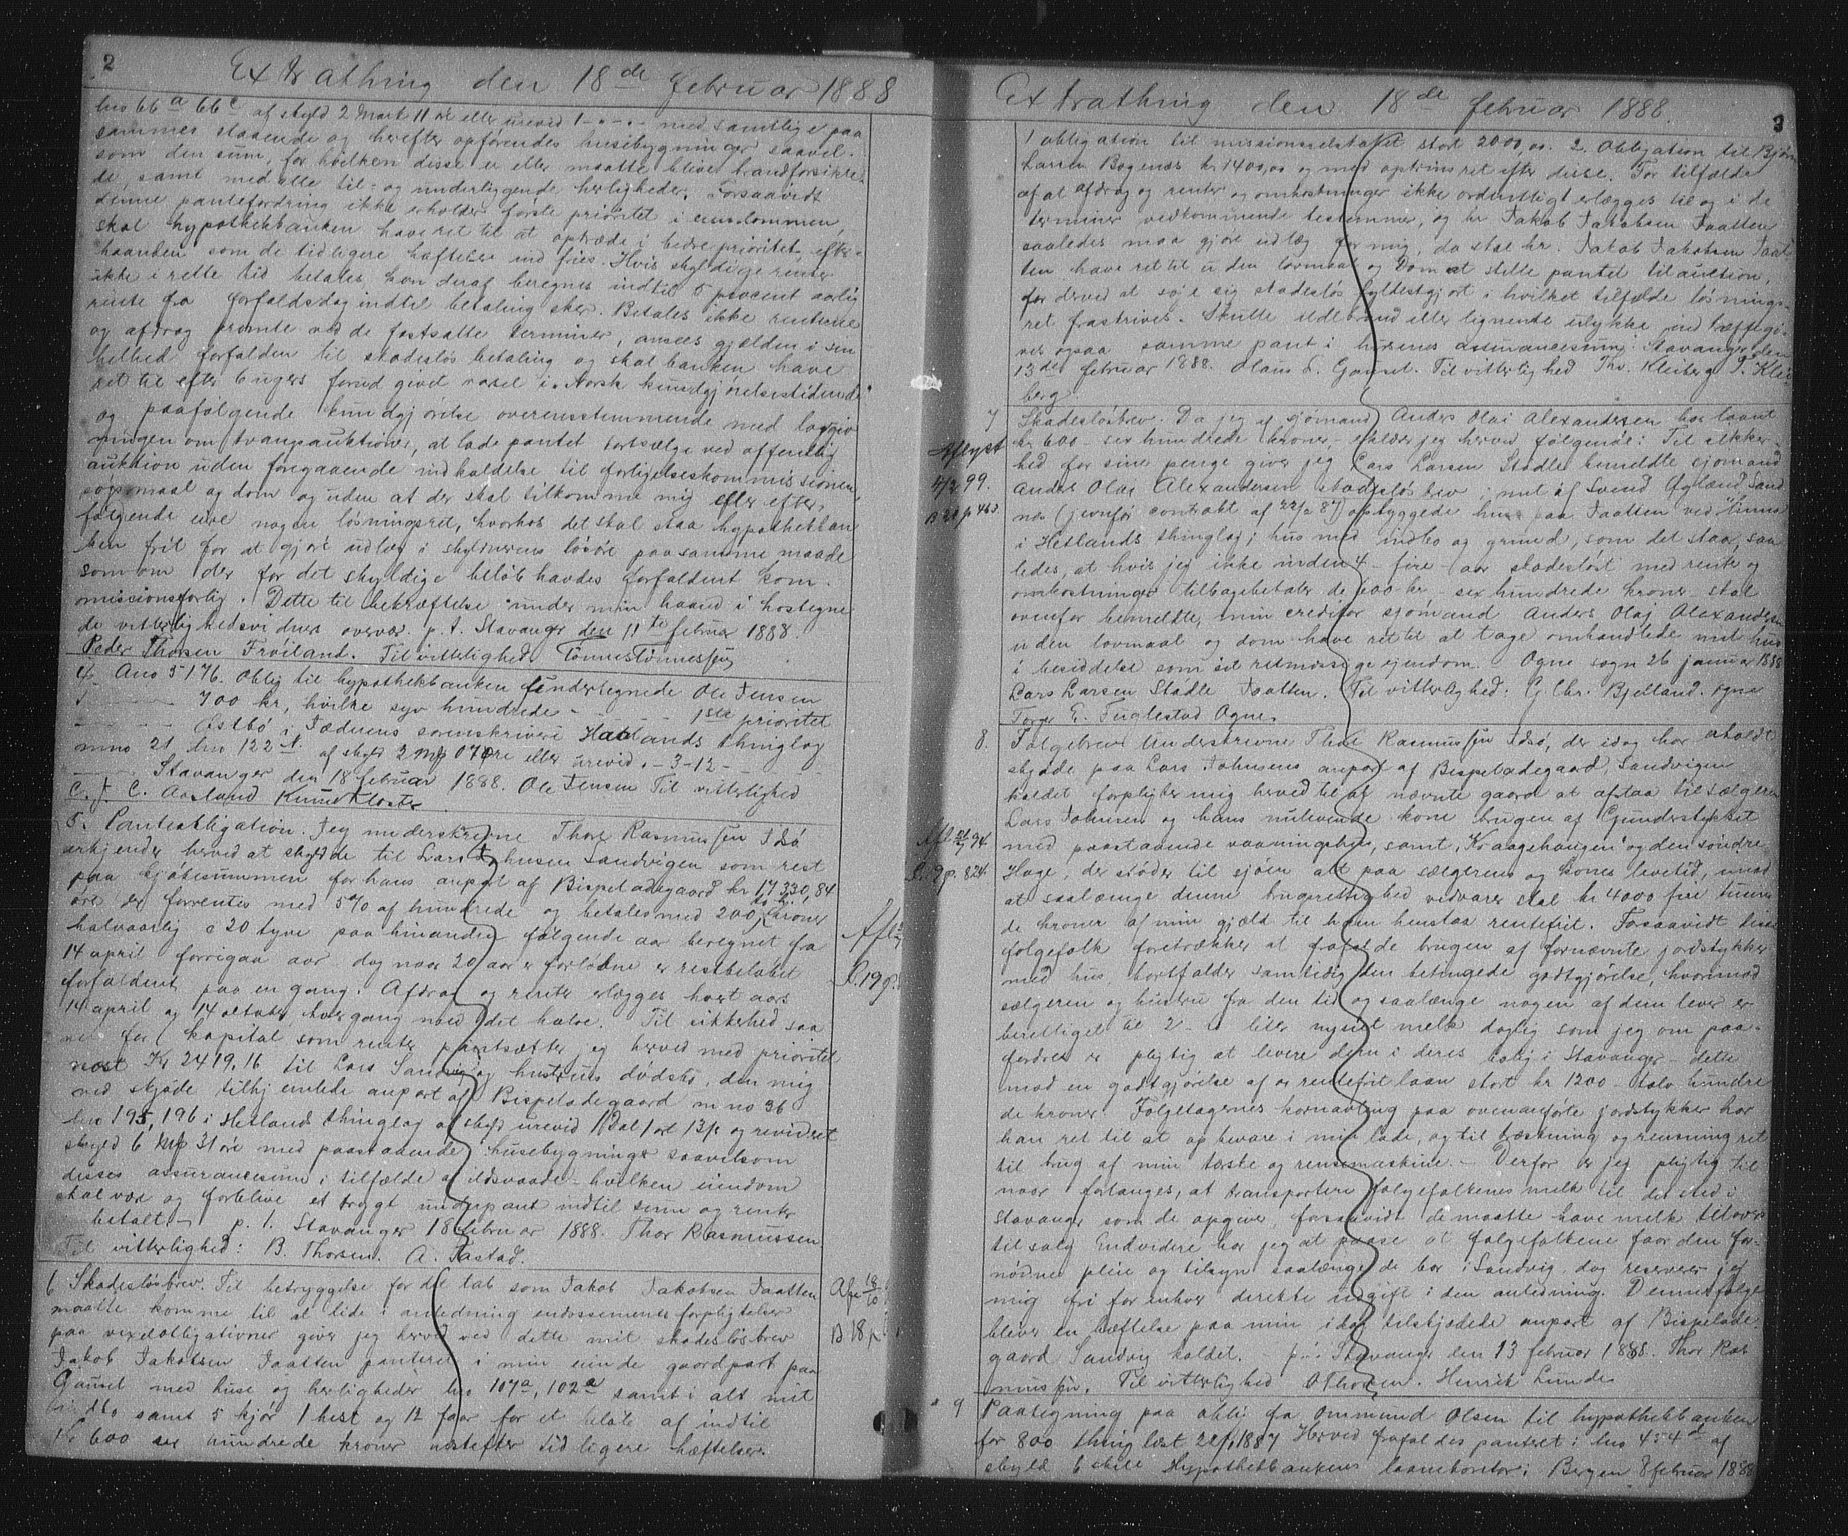 2
Extrathing den 18de februar 1888
lno 66a 66c af skyld 2 Mark 11 øre eller urevid 1 - " - " - med samtlige paa
sammes staaende og herefter opførendes husebygninger saavel
som den sum, for hvilken disse er eller maatte blive brandforsikre-
de, samt med alle til- og underliggende herligheder. Forsaavidt
denne pantefordring ikke erholder første prioritet i eiendommen,
skal hypothekbanken have ret til at optræde i bedre prioritet, efter-
haanden som de tidligere hæftelser indfries. Hvis skyldige renter
ikke i rette tid betales kan deraf beregnes indtil 5 procent aarlig
rente fra forfaldsdag indtil betaling sker. Betales ikke renterne
og afdrag promte ved de fastsatte terminer, ansees gjælden i sin
helhed forfalden til skadesløs betaling og skal banken have
ret til efter 6 ugers forud givet varsel i "Norsk kundgjørelsestidende"
og paafølgende kundgjørelse overensstemmende med lovgiv
ningen om tvangsauktioner, at lade pantet bortsælge ved offentlig
auktion uden foregaaende indkaldelse til forligelseskommissionen,
søgsmaal og dom og uden at der skal tilkomme mig eller efter-
følgende eiere nogen løsningsret, hvorhos det skal staa hypothekban
ken frit for at gjøre udlæg i skyldnerens løsøre paa samme maade
som om der for det skyldige beløb havdes forfaldent kom-
missionsforlig. Dette til bekræftelse under min haand i hostegne
de vitterlighedsvidners overvær. p. t. Stavanger den 11te februar 1888.
Peder Thorsen Frøiland. Til vitterlighed Tønnes Tønnessen
4. Ano 5176. Oblig til hypothekbanken Undertegnede Ole Jensen
700 kr, hvilke syv hundrede - - - - 1ste prioritet
Østbø i Jæderens sorenskriveri Hetlands thinglag
mno 21 lno 122 af skyld 2 Mk 07 øre eller urevid. " - 3 - 12 -
Stavanger den 18 februar 1888. Ole Jensen Til vitterlighed
C. F. C. Aasland Knud Kloster
5. Panteobligation. Jeg underskrevne Thor Rasmussen Idsø
erkjender herved at skylde til Lars Johnsen Sandvigen som rest
paa kjøbesummen for hans anpart af Bispeladegaard kr 17,330,84
øre der forrentes med 5% af hundrede og betales med 200 to h. kroner
halvaarlig i 20 tyve paa hinanden følgende aar beregnet fra
14 april forrigaa aar - dog naar 20 aar er forløbne er restbeløbet
forfaldent paa en gang. Afdrag og renter erlægges hvert aars
14 april og 14 oktober, hver gang med det halve. Til sikkerhed saa
vel for kapital som renter pantsætter jeg herved med prioritet
næst Kr 2419,16 til Lars Sandvig og hustrus dødsbo, den mig
ved skjøde tilhjemlede anpart af Bispeladegaard m no 36
lno 195, 196 i Hetlands thinglag af skyld urevid 1 Dal 1 ort 13 s og revideret
skyld 6 Mk 31 øre med paastaaende husebygninger saavelsom
disses assurancesum i tilfælde af ildsvaade - hvilken eiendom
skal være og forblive et trygt underpant indtil sum og renter
betalt - p. t. Stavanger 18 februar 1888. Thor Rasmussen
Til vitterlighed: B. Thorsen. A. Tastad.
Afl
B. 19 p.
6. Skadesløsbrev. Til betryggelse for det tab som Jakob Jakobsen Jaatten
maatte komme til at lide i anledning endossementsforpligtelser
paa vexelobligationer giver jeg herved ved dette mit skadesløsbrev
Jakob Jakobsen Jaatten panteret i min eiende gaardpart paa
Gausel med huse og herligheder lno 107a, 102a samt i alt mit
indbo samt 5 kjør 1 hest og 12 faar for et beløb af indtil
Kr 600 sex hundrede kroner næstefter tidligere hæftelser.
Afl 18/10
B 18 p
Extrathing den 18de februar 1888.
3
1 obligation til missionsselskabet stort 2000,00. 2. Obligation til Bjørn
Larsen Bogenæs kr 1400,00 og med optrinsret efter disse. For tilfælde
af at afdrag og renter og omkostninger ikke ordentligt erlægges til og i de
terminer vedkommende bestemmer, og hr Jakob Jakobsen Jaatten
saaledes maa gjøre udlæg for mig, da skal hr. Jakob Jakobsen Jaat
ten have ret til uden lovmaal og Dom at stille pantet til auction,
for derved at søge sig skadesløs fyldestgjort i hvilket tilfælde løsnings-
ret frastrives. Skulle ildebrand eller lignende ulykke indtræffe gi-
ves ogsaa samme pant i husenes assurancesum. Stavanger den
13de februar 1888. Olaus L. Gausel. Til vitterlighed Thv. Kleiberg P. Klei
berg.
7
Skadesløsbrev. Da jeg af sjømand Anders Olai Alexandersen har laant
kr 600 - sex hundrede kroner - erklærer jeg herved følgende: Til sikker-
hed for sine penge giver jeg Lars Larsen Stadle bemeldte sjømand
Anders Olai Alexandersen skadesløsbrev i mit af Svend Aglænd Sand
næs (jevnfør contrakt af 22/2 87) opbyggede hus paa Jaatten ved Hinna
i Hetlands thinglag; hus med indbo og grund, som det staar, saa
ledes, at hvis jeg ikke inden 4 - fire - aar skadesløst med rente og
omkostninger tilbagebetaler de 600 kr - sex hundrede kroner - skal
ovenfor bemeldte min creditor sjømand Anders Olaj Alexandersen
uden lovmaal og dom have ret til at tage omhandlede mit hus
i besiddelse som sit retmæssige ejendom. Ogne sogn 26 januar 1888
Lars Larsen Stadle Jaatten. Til vitterlighed: G. Chr. Bjelland. Ogne
Torger E. Fuglestad Ogne.
Aflyst
4/2 99.
B 21 p 463.
8.
Følgebrev Underskrevne Thor Rasmussen Idsø, der idag har afholdt
skjøde paa Lars Johnsens anpart af Bispeladegaard, Sandvigen
kaldet forpligter mig herved til af nævnte gaard at afstaa til sælgeren
Lars Johnsen og hans nulevende kone brugen af Gunderstykket
med paastaaende vaaningshus, samt "Kraagehaugen" og den søndre
Hage, der støder til sjøen alt paa sælgerens og kones levetid, imod
at saalænge denne brugsrettighed vedvarer skal kr 4000 fire tusin
de kroner af min gjæld til ham henstaa rentefrit. Forsaavidt disse
følgefolk foretrækker at frafalde brugen af fornævnte jordstykker
med hus, bortfalder samtidig den betingede godtgjørelse, hvorimod
sælgeren og hustru fra den tid og saalænge nogen af dem lever er
berettiget til 2 - to liter nysiet melk daglig som jeg om paa-
fordres er pligtig at levere dem i deres bolig i Stavanger - dette
mod en godtgjørelse af og rentefrit laan stort kr 1200 - tolv hundre
de kroner. Følgetagernes kornavling paa ovenanførte jordstykker har
han ret til at opbevare i min lade, og til tæskning og rensning ret
til brug af min tærske og rensemaskine. - Derfor er jeg pligtig til
naar forlanges, at transportere følgefolkenes melk til det sted i
Stavanger som de opgiver, forsaavidt de maatte have melk tilovers
til salg Endvidere har jeg at paase at følgefolkene faar den for-
nødne pleie og tilsyn saalænge de bor i Sandvig, dog reserverer jeg
mig fri for enhver direkte udgift i den anledning. Denne følge
bliver en hæftelse paa min idag tilskjødede anpart af Bispelade-
gaard Sandvig kaldet. - p. t. Stavanger den 13 februar 1888. Thor Ras
mussen. Til vitterlighed O Thorsen. Henrik Lunde.
Afl 94
B. 9 p. 824
9
Paategning paa oblig fra Ommund Olsen til hypothekbanken
for 800 thinglæst 1887 Herved frafaldes panteret i lno 454d af
skyld 6 skill Hypothekbankens laanekontor i Bergen 8 februar 1888